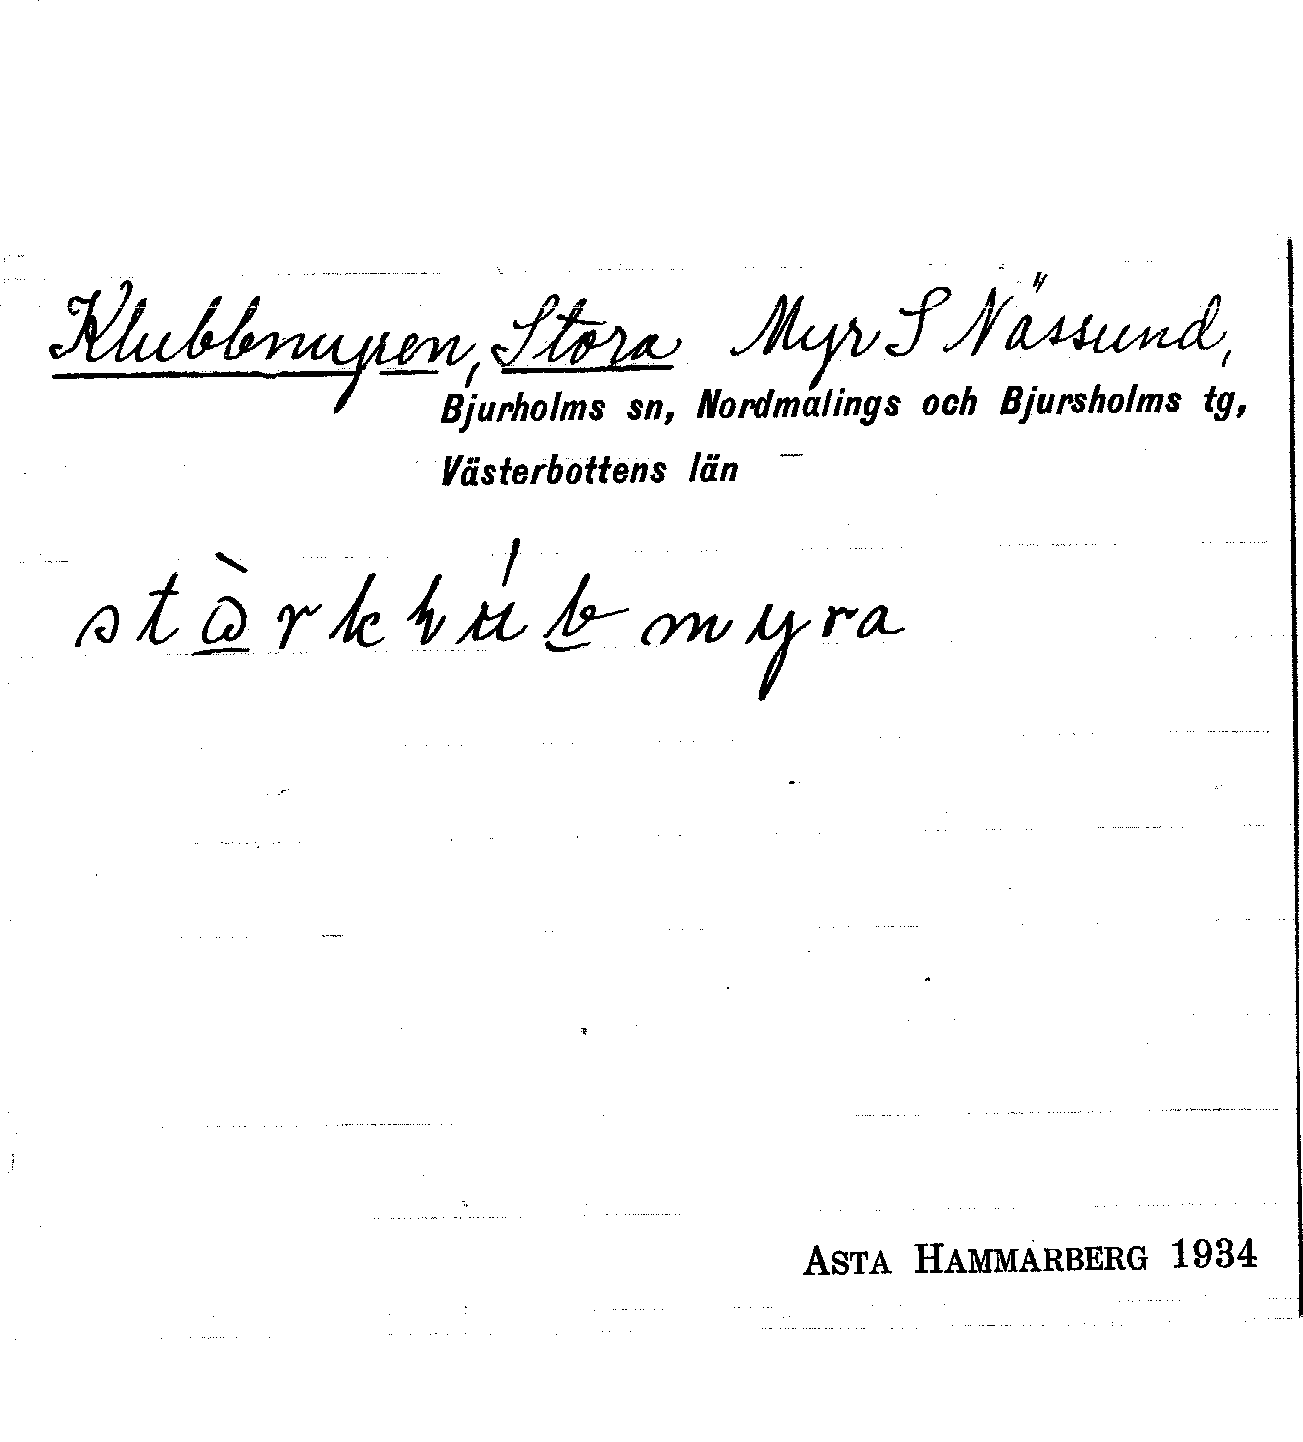 Klubbmyren, Stora Myr S Nässund,
Bjurholms sn, Nordmalings och Bjursholms tg,
Västerbottens län
ASTA HAMMARBERG 1934